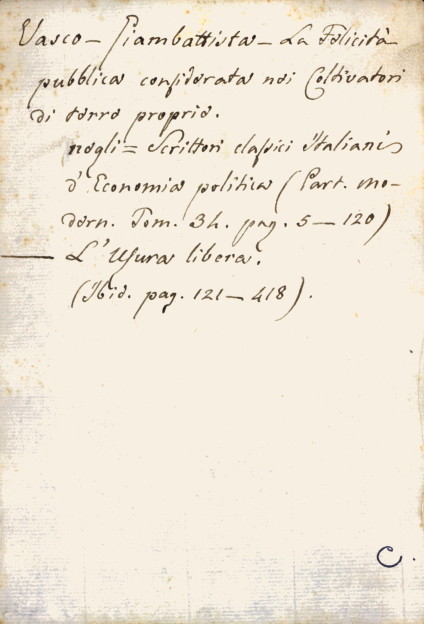 Vasco - Giambattista - La Felicità
pubblica considerata nei Coltivatori
di terre proprie.
negli = Scrittori classici Italiani
d'Economia politica (Part. mo-
dern. Tom. 34. pag. 5 - 120)
— L'Usura libera.
(Ibid. pag. 121 - 418).
C.